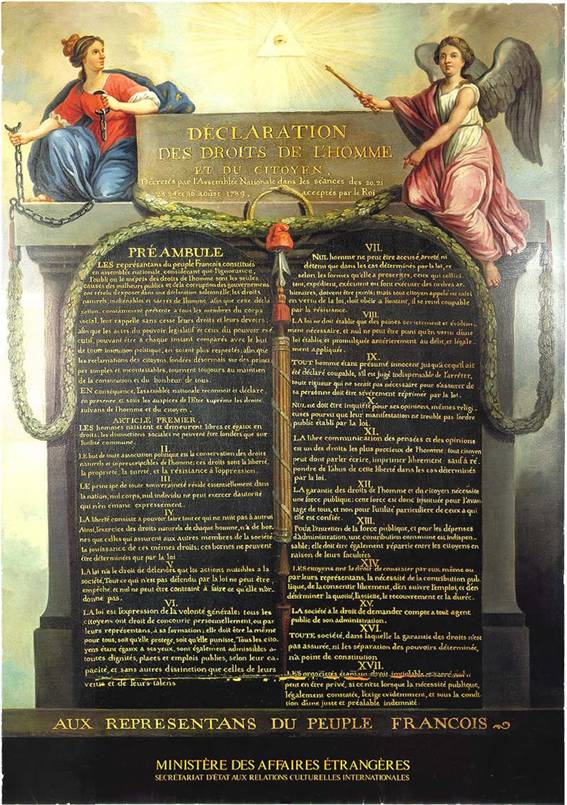 DÉCLARATION
DES DROITS DE L'HOMME
ET DU CITOYEN,
Décretés par l'Assemblée Nationale dans les séances des 20, 21
23, 24 et 26 août 1789, acceptés par le Roi
PRÉAMBULE
LES représentans du peuple François constitués
en assemblée nationale, considérant que l'ignorance,
l'oubli ou le mépris des droits de l'homme sont les seules
causes des malheurs publics et de la corruption des gouvernemens
ont résolu d'exposer dans une déclaration solemnelle, les droits
naturels, inaliénables et sacrés de l'homme, afin que cette décla
ration, constamment présente à tous les membres du corps
social, leur rappelle sans cesse leurs droits et leurs devoirs
afin que les actes du pouvoir législatif et ceux du pouvoir exé
cutif, pouvant être à chaque instant comparés avec le but
de toute institution politique, en soient plus respectés; afin que
les réclamations des citoyens, fondées désormais sur des princi
pes simples et incontestables, tournent toujours au maintien
de la constitution et du bonheur de tous.
EN conséquence, l'assemblée nationale reconnoît et déclare
en présence et sous les auspices de l'Être suprême les droits
suivans de l'homme et du citoyen.
ARTICLE PREMIER.
LES hommes naissent et demeurent libres et égaux en
droits; les distinctions sociales ne peuvent être fondées que sur
l'utilité commune.
II.
LE but de toute association politique est la conservation des droits
naturels et imprescriptibles de l'homme; ces droits sont la liberté,
la propriété, la sureté, et la résistance à l'oppression.
III
LE principe de toute souveraineté réside essentiellement dans
la nation, nul corps, nul individu ne peut exercer d'autorité
qui n'en émane expressement.
IV
LA liberté consiste à pouvoir faire tout ce qui ne nuit pas à autrui
Ainsi, l'exercice des droits naturels de chaque homme, n'a de bor
nes que celles qui assurent aux autres membres de la société
la jouissance de ces mêmes droits; ces bornes ne peuvent
être déterminées que par la loi
V
LA loi n'a le droit de défendre que les actions nuisibles à la
société. Tout ce qui n'est pas défendu par la loi ne peut être
empêché, et nul ne peut être contraint à faire ce qu'elle n'or
donne pas.
VI.
LA loi est l'expression de la volonté générale; tous les
citoyens ont droit de concourir personnellement, ou par
leurs représentans, à sa formation; elle doit être la même
pour tous, soit qu'elle protege, soit qu'elle punisse. Tous les cito
yens étant égaux à ses yeux, sont également admissibles à
toutes dignités, places et emplois publics, selon leur ca
pacité, et sans autres distinction que celles de leurs
vertus et de leurs talens
VII.
NUL homme ne peut être accusé, arreté, ni
détenu que dans les cas déterminés par la loi, et
selon les formes qu'elle a prescrites, ceux qui sollici
tent, expédient, exécutent ou font exécuter des ordres ar
bitraires, doivent être punis; mais tout citoyen appelé ou saisi
en vertu de la loi, doit obéir à l'instant, il se rend coupable
par la résistance.
VIII.
LA loi ne doit établir que des peines strictement et évidem
ment nécessaires, et nul ne peut être puni qu'en vertu d'une
loi établie et promulguée antérieurement au délit, et légale
ment appliquée.
IX.
TOUT homme étant présumé innocent jusqu'à ce qu'il ait
été déclaré coupable, s'il est jugé indispensable de l'arrêter,
toute rigueur qui ne serait pas nécessaire pour s'assurer de
sa personne doit être sévèrement réprimée par la loi.
X
NUL ne doit être inquiété pour ses opinions, mêmes religi
euses pourvu que leur manifestation ne trouble pas l'ordre
public établi par la loi.
XI.
LA libre communication des pensées et des opinions
est un des droits les plus précieux de l'homme: tout citoyen
peut donc parler écrire, imprimer librement sauf à ré
pondre de l'abus de cette liberté dans les cas déterminés
par la loi.
XII.
LA garantie des droits de l'homme et du citoyen nécessite
une force publique: cette force est donc instituée pour l'avan
tage de tous, et non pour l'utilité particuliere de ceux à qui
elle est confiée.
XIII.
Pour l'entretien de la force publique, et pour les dépenses
d'administration, une contribution commune est indispen
sable; elle doit être également répartie entre les citoyens en
raison de leurs facultées
XIV.
LES citoyens ont le droit de constater par eux même ou
par leurs représentans, la nécessité de la contribution pub
lique, de la consentir librement, d'en suivre l'emploi, et d'en
déterminer la quotité, l'assiette, le recouvrement et la durée.
XV.
LA société a le droit de demander compte a tout agent
public de son administration.
XVI.
TOUTE société, dans laquelle la garantie des droits n'est
pas assurée, ni la séparation des pouvoirs déterminée,
n'a point de constitution
XVII.
LES propriétés étant un droit inviolable et sacré nul ne
peut en être privé, si ce n'est lorsque la nécessité publique,
légalement constatée, l'exige évidemment, et sous la condi
tion d'une juste et préalable indemnité.
AUX REPRESENTANS DU PEUPLE FRANCOIS
MINISTÈRE DES AFFAIRES ÉTRANGÈRES
SECRÉTARIAT D'ÉTAT AUX RELATIONS CULTURELLES INTERNATIONALES